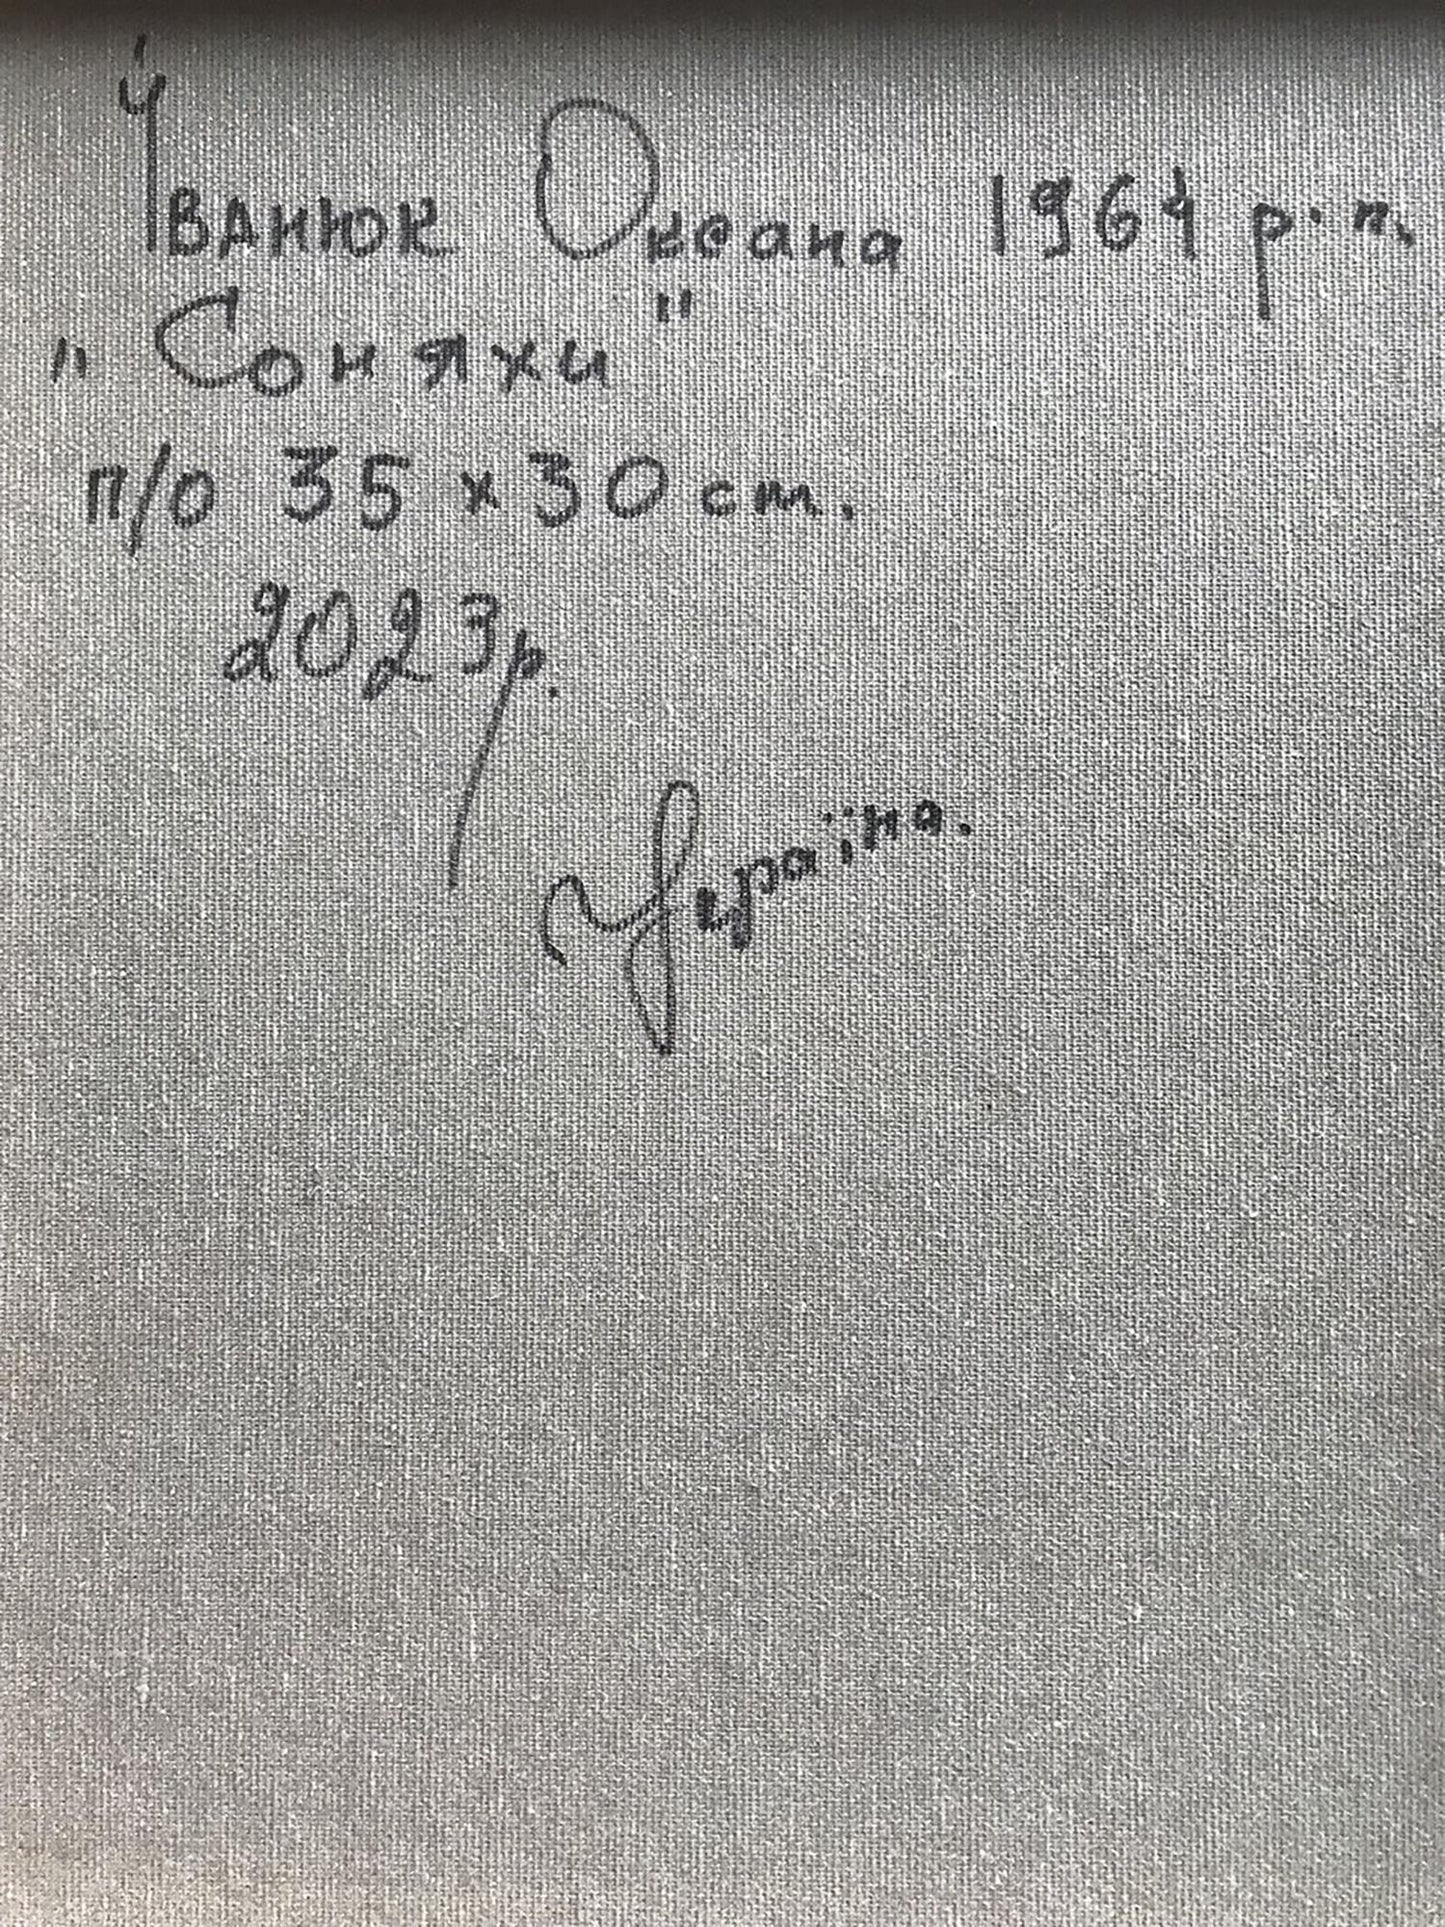 Іванюк Оксана 1964 р.н.
"Соняхи"
п/о 35 x 30 cm.
2023р.
Україна.